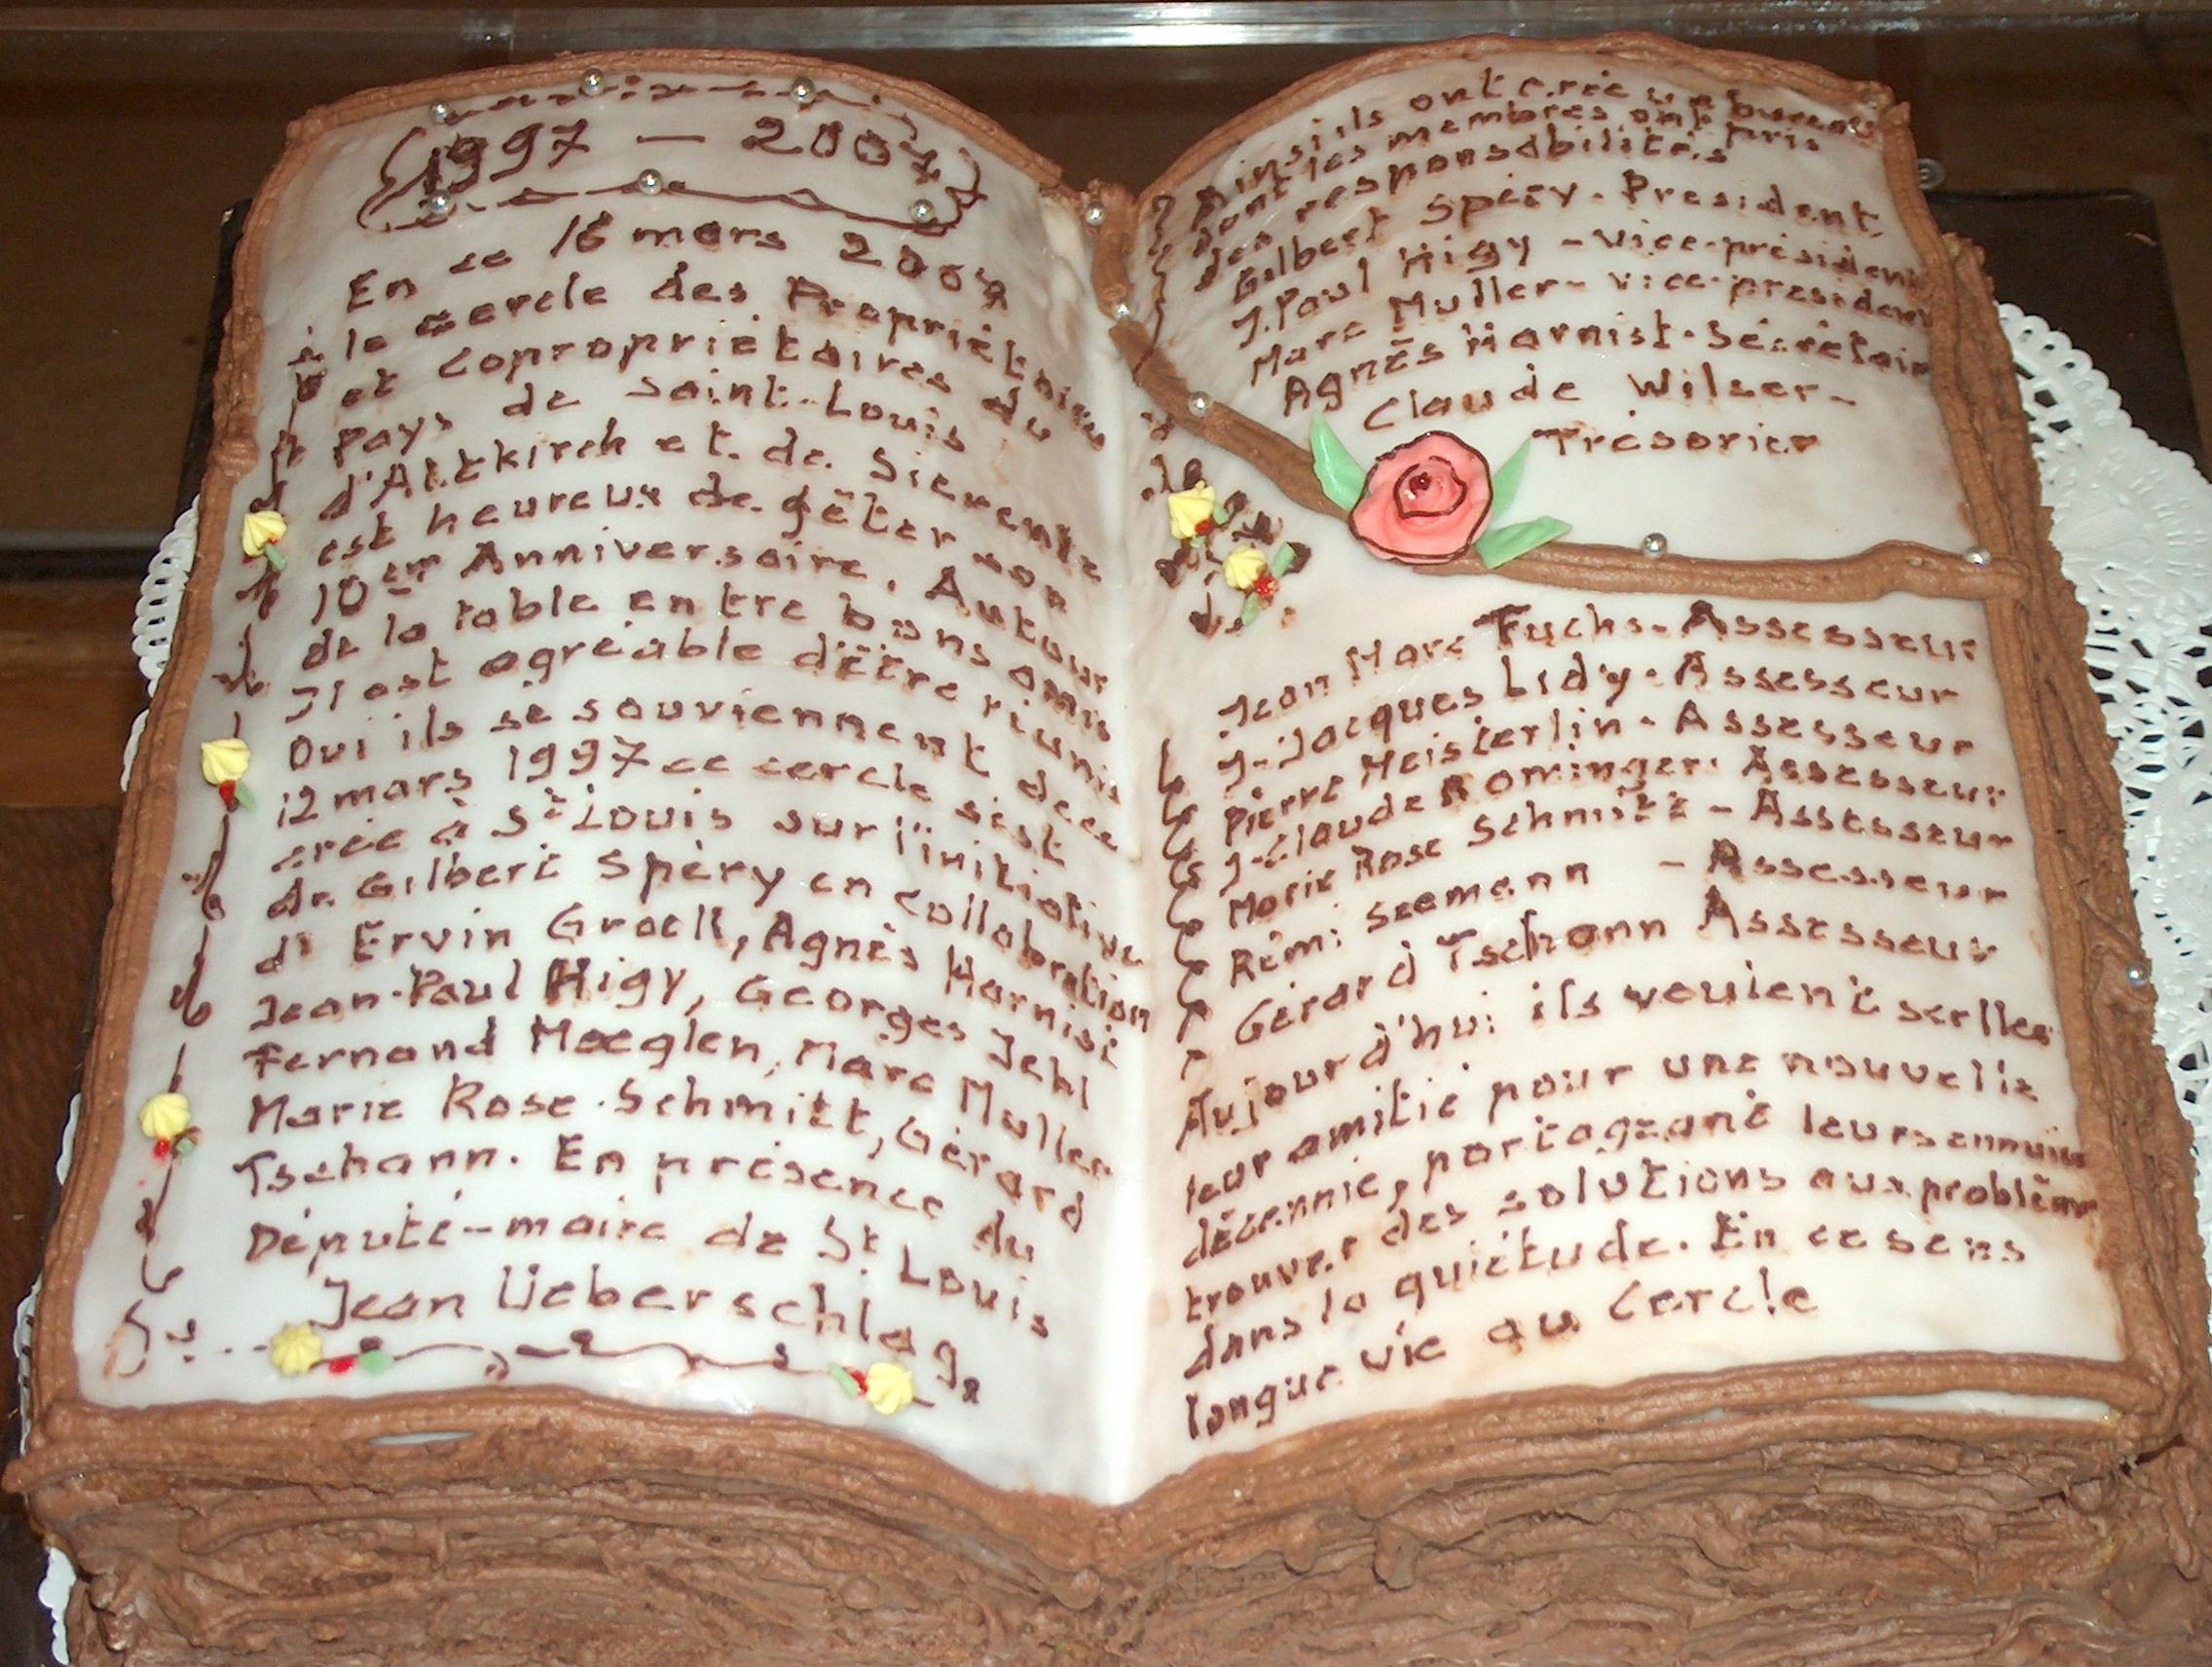 1997 - 2007
En ce 16 mars 2007
le cercle des Propriétaires
et Copropriétaires du
Pays de Saint-Louis
d'Altkirch et de Sierentz
est heureux de fêter son
10ème Anniversaire. Autour
de la table entre bons amis
Il est agréable d'être réunis
Oui ils se souviennent de ce
12 mars 1997 ce cercle s'est
crée à St Louis sur l'initiative
de Gilbert Spéry en collaboration
d' Ervin Groell, Agnès Harnist
Jean-Paul Higy, Georges Jehl
Fernand Moeglen, Marc Muller
Marie Rose Schmitt, Gérard
Tschann. En présence du
Député-maire de St Louis
Jean Ueberschlag.
Ainsi ils ont crée un bureau
dont les membres ont pris
des responsabilités
Gilbert Spéry - President
J.Paul Higy - Vice-président
Marc Muller - Vice-president
Agnès Harnist - Sécrétaire
Claude Wilser -
Trésorier
Jean Marc Fuchs - Assesseur
J-Jacques Lidy - Assesseur
Pierre Meisterlin - Assesseur
J-Claude Rominger - Assesseur
Marie Rose Schmitt - Assesseur
Rémi Seemann - Assesseur
Gérard Tschann Assesseur
Aujourd'hui ils veulent sceller
leur amitié pour une nouvelle
décennie, partageant leurs ennuis
trouver des solutions aux problèmes
dans la quiétude. En ce sens
longue vie au Cercle